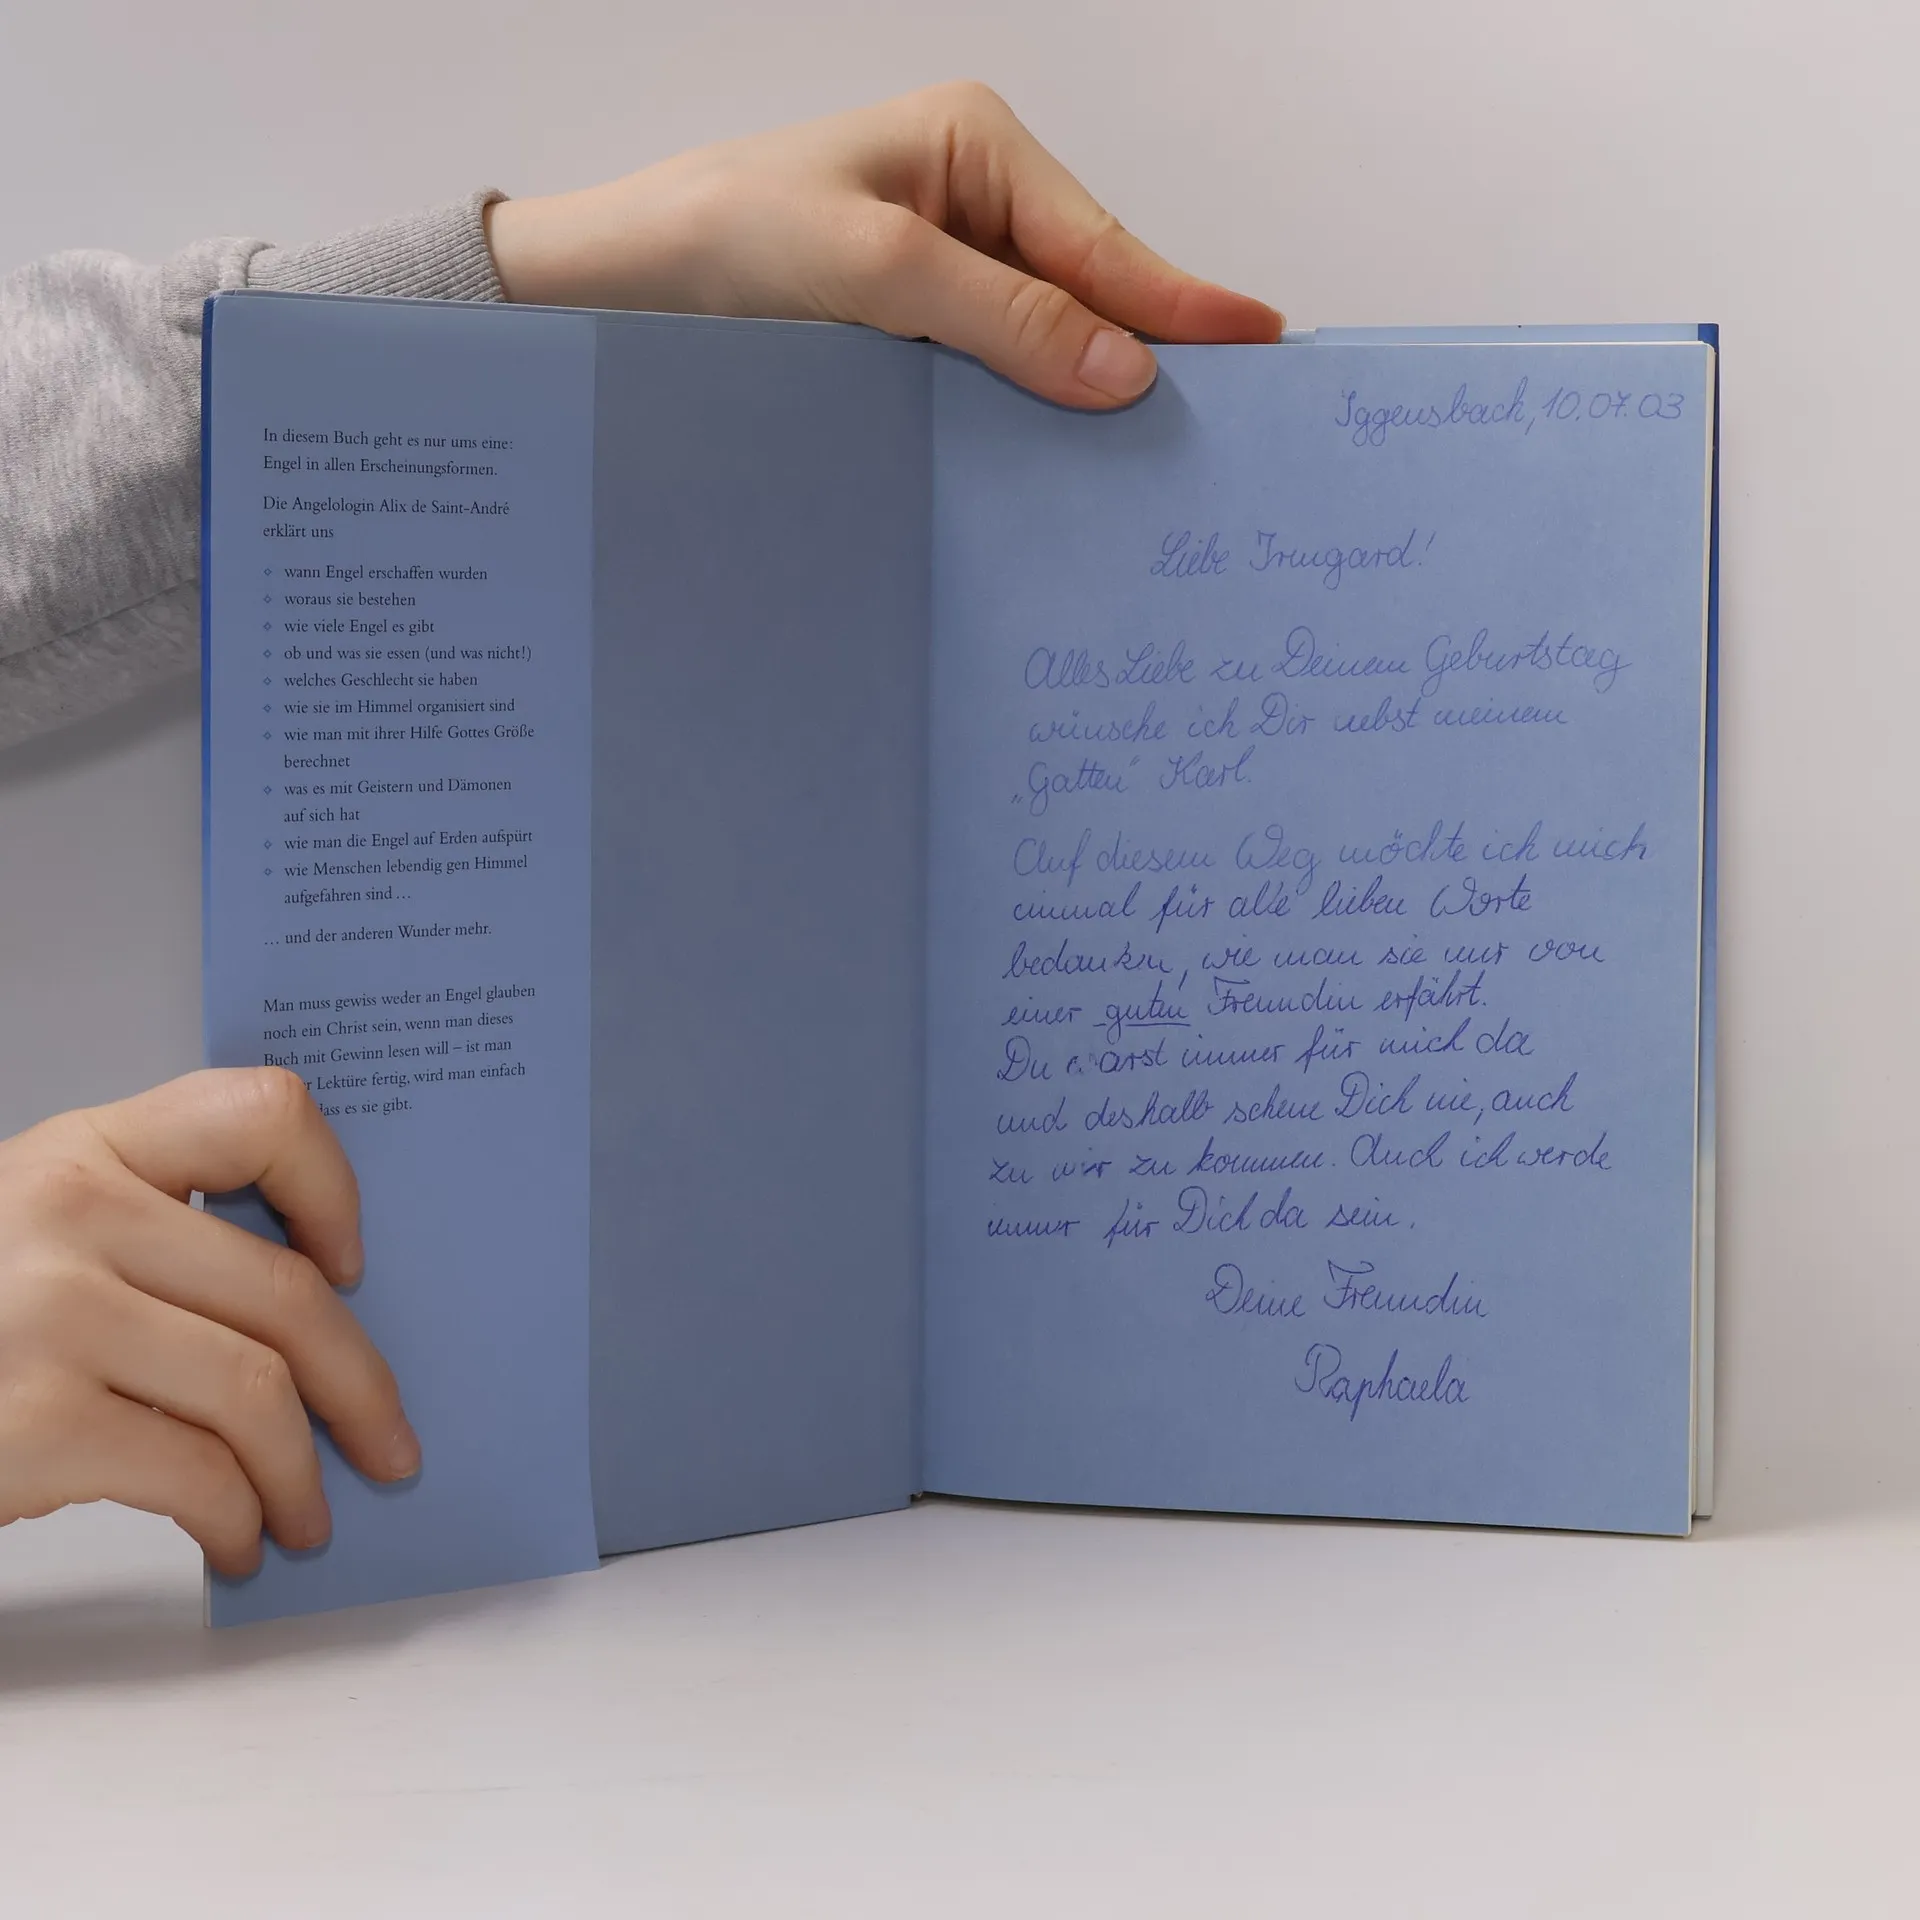 In diesem Buch geht es nur ums eine:
Engel in allen Erscheinungsformen.
Die Angelologin Alix de Saint-André
erklärt uns
⋄ wann Engel erschaffen wurden
⋄ woraus sie bestehen
⋄ wie viele Engel es gibt
⋄ ob und was sie essen (und was nicht!)
⋄ welches Geschlecht sie haben
⋄ wie sie im Himmel organisiert sind
⋄ wie man mit ihrer Hilfe Gottes Größe
berechnet
⋄ was es mit Geistern und Dämonen
auf sich hat
⋄ wie man die Engel auf Erden aufspürt
⋄ wie Menschen lebendig gen Himmel
aufgefahren sind …
… und der anderen Wunder mehr.
Man muss gewiss weder an Engel glauben
noch ein Christ sein, wenn man dieses
Buch mit Gewinn lesen will – ist man
Lektüre fertig, wird man einfach
dass es sie gibt.
Iggensbach, 10.07.03
Liebe Irmgard!
Alles Liebe zu Deinem Geburtstag
wünsche ich Dir nebst meinem
„Gatten" Karl.
Auf diesem Weg möchte ich mich
einmal für alle lieben Worte
bedanken, wie man sie nur von
einer guten Freundin erfährt.
Du warst immer für mich da
und deshalb scheue Dich nie, auch
zu mir zu kommen. Auch ich werde
immer für Dich da sein.
Deine Freundin
Raphaela